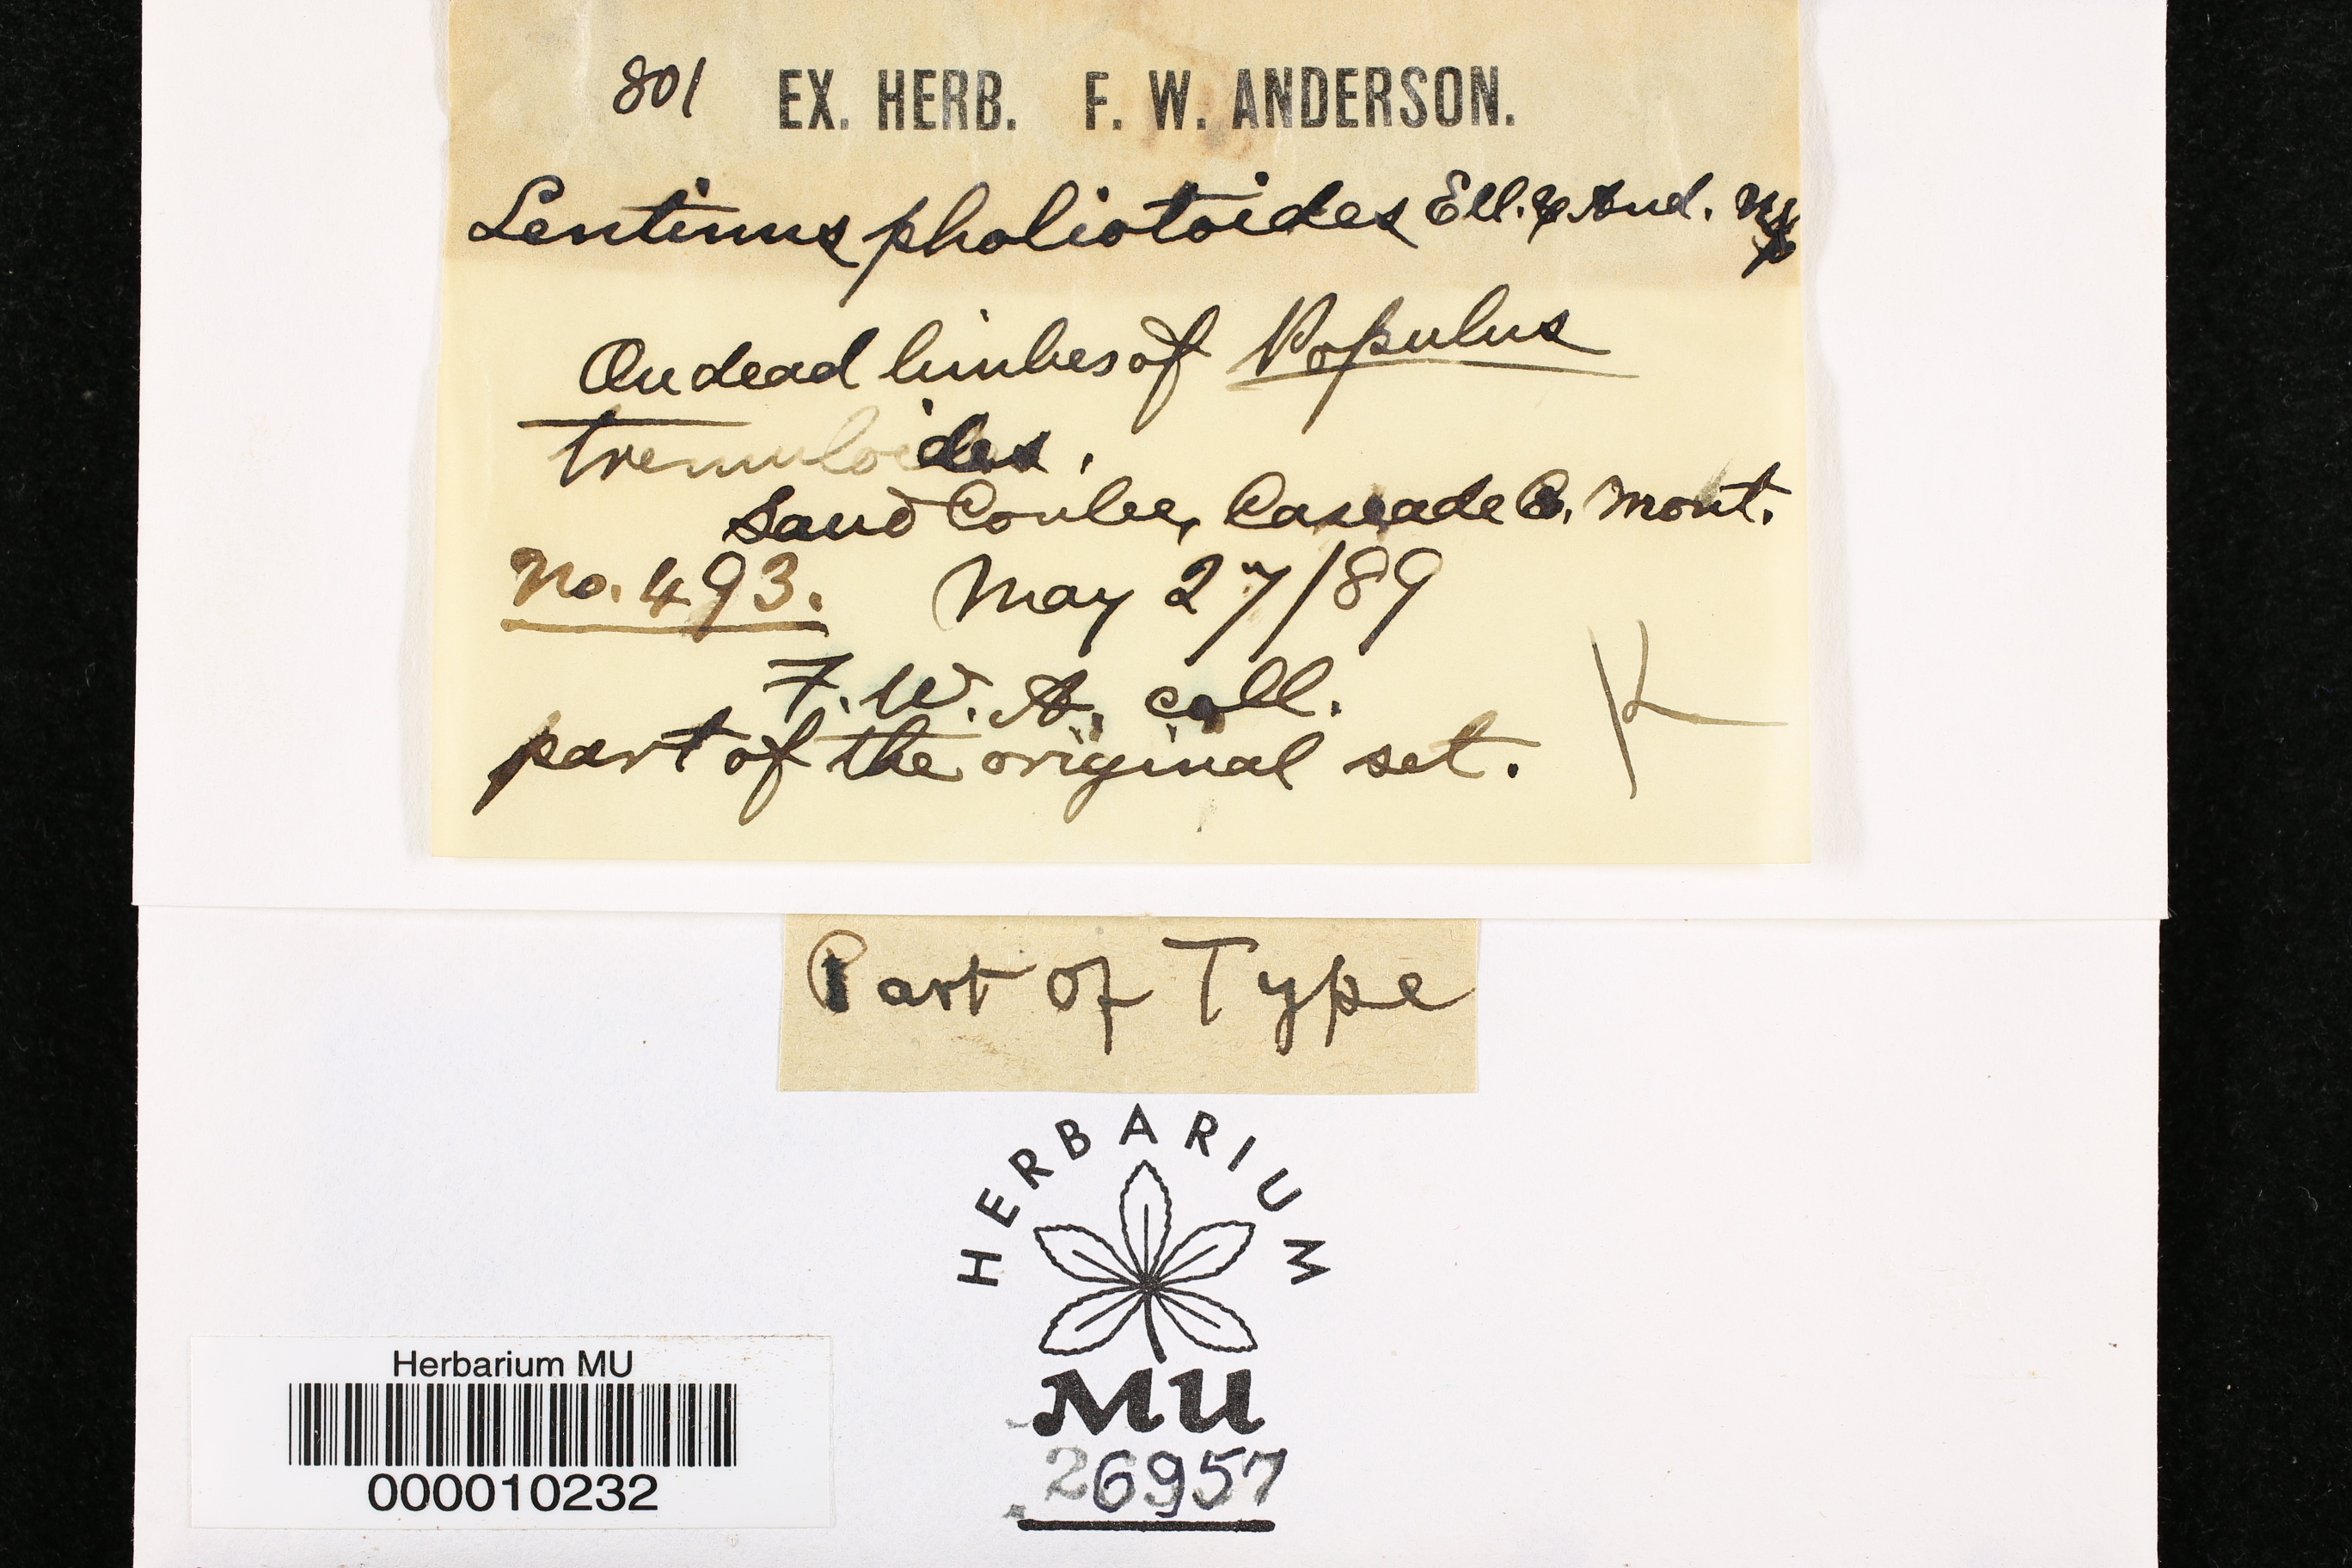 801 EX. HERB. F. W. ANDERSON.
Lentinus pholiotoides Ell. & And.
On dead limbes of Populus
tremuloides.
Sand Coulee, Cascade Co. Mont.
No. 493. May 27/89
F. W. A. coll.
part of the original set. K
Part of Type
HERBARIUM
MU
26957
Herbarium MU
000010232